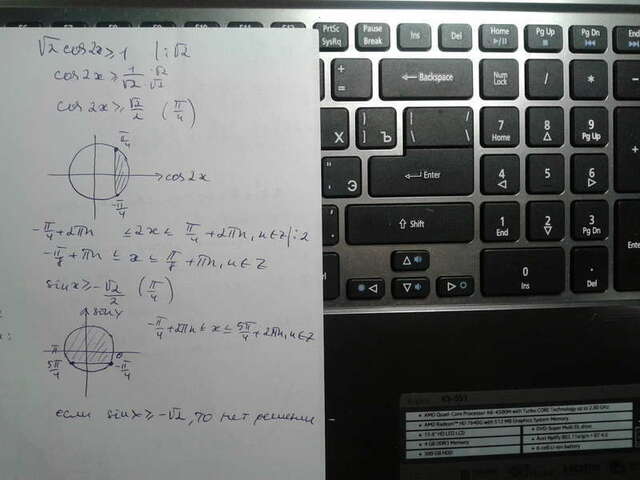 √2 cos2x ≥ 1 | :√2
cos2x ≥ 1/√2 ·√2/·√2
cos2x ≥ √2/2 (π/4)
π/4
cos2x
-π/4
-π/4 + 2πn ≤ 2x ≤ π/4 + 2πn, n∈Z | :2
-π/8 + πn ≤ x ≤ π/8 + πn, n∈Z
sinx ≥ -√2/2 (π/4)
sinx
-π/4 + 2πn ≤ x ≤ 5π/4 + 2πn, n∈Z
π
0
5π/4
-π/4
если sinx ≥ -√2, то нет решений
PrtSc
SysRq
Pause
Break
Ins
Del
Home
Pg Up
Pg Dn
End
+
=
Backspace
Num
Lock
/
*
-
Х
Ъ
\
/
7
Home
8
9
Pg Up
Э
Enter
4
5
6
Shift
1
End
2
3
Pg Dn
0
Ins
.
Del
AMD Quad-Core Processor
AMD Radeon™ HD 7640G with 512 MB Graphics System Memory
15.6" HD LED LCD
4 GB DDR3 Memory
500 GB HDD
DVD-Super Multi DL drive
6-cell Li-ion battery